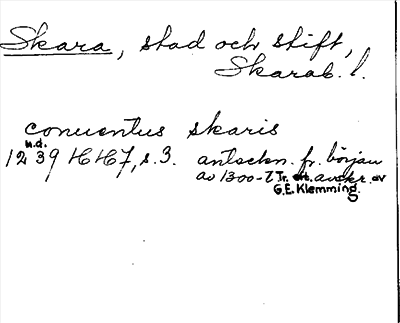 Skara, stad och stift,
Skarab. l.
conventus skaris
n.d.
1239 HH7, s. 3. anteckn. fr. början
av 1300-t Tr. eft. avskr. av
G.E. Klemming.